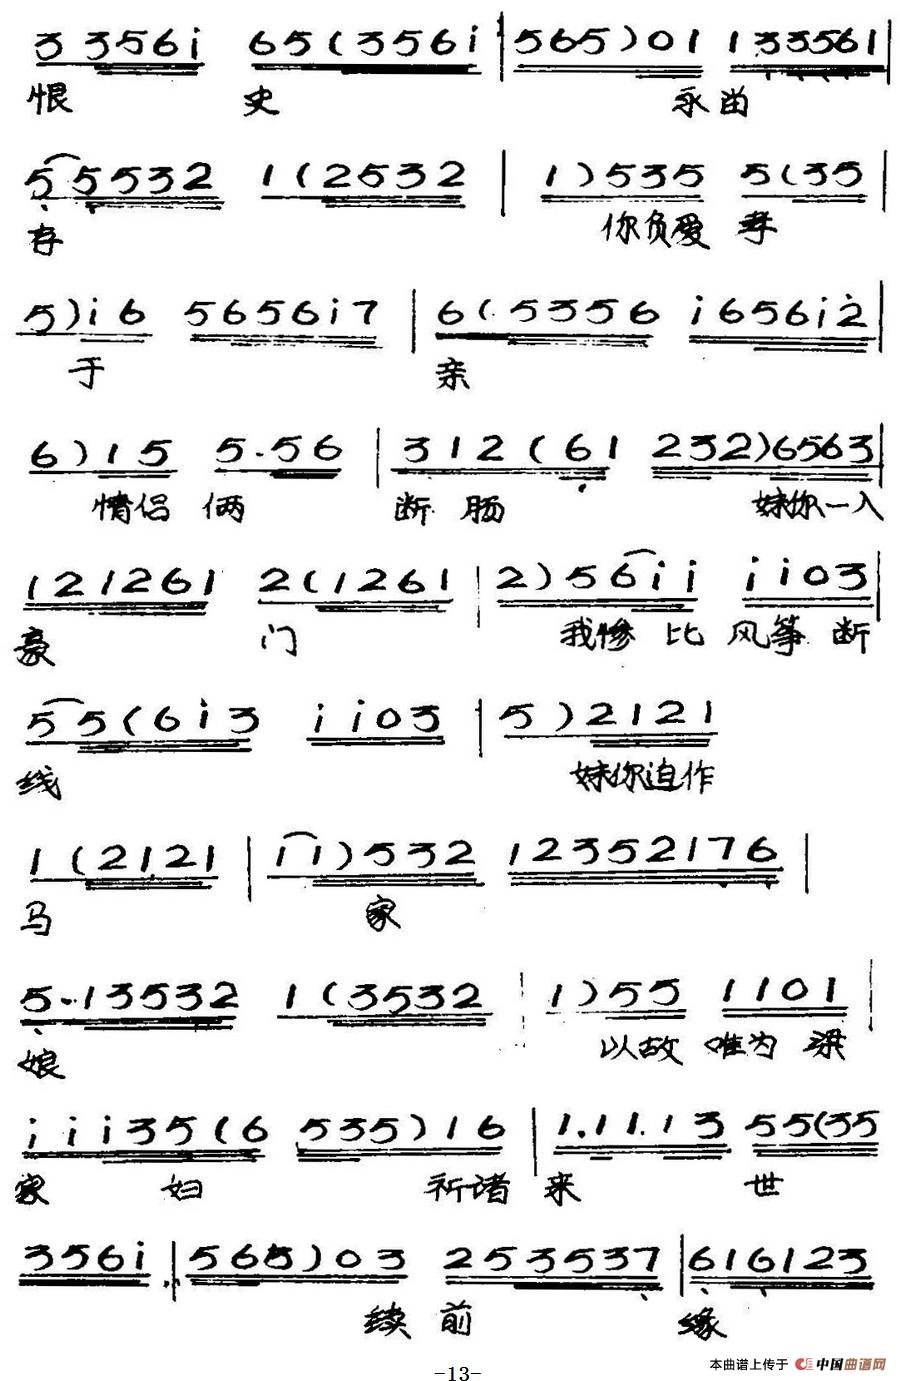 3 3 3 5 6 i 6 5 ( 3 5 6 i | 5 6 5 ) 0 1 1 3 3 5 6 1 |
恨 史 永留
5 5 5 5 3 2 1 ( 2 5 3 2 | 1 ) 5 3 5 5 ( 3 5 |
存 你负爱 孝
5 ) i 6 5 6 5 6 i 7 | 6 ( 5 3 5 6 i 6 5 6 i 2 |
于 亲
6 ) 1 5 5 . 5 6 | 3 1 2 ( 6 1 2 3 2 ) 6 5 6 3 |
情侣 俩 断 肠 妹你一入
1 2 1 2 6 1 2 ( 1 2 6 1 | 2 ) 5 6 i i i i 0 3 |
豪 门 我惨 比 风筝 断
5 5 ( 6 i 3 i i 0 3 | 5 ) 2 1 2 1
线 妹你迫作
1 ( 2 1 2 1 | 1 1 ) 5 3 2 1 2 3 5 2 1 7 6 |
马 家
5 . 1 3 5 3 2 1 ( 3 5 3 2 | 1 ) 5 5 1 1 0 1 |
娘 以故 唯为 梁
i i i 3 5 ( 6 5 3 5 ) 1 6 | 1 . 1 1 . 1 3 5 5 ( 3 5
家 妇 祈诸 来 世
3 5 6 i | 5 6 5 ) 0 3 2 5 3 5 3 7 | 6 1 6 1 2 3
续 前 缘
本曲谱上传于 中国曲谱网
-13-